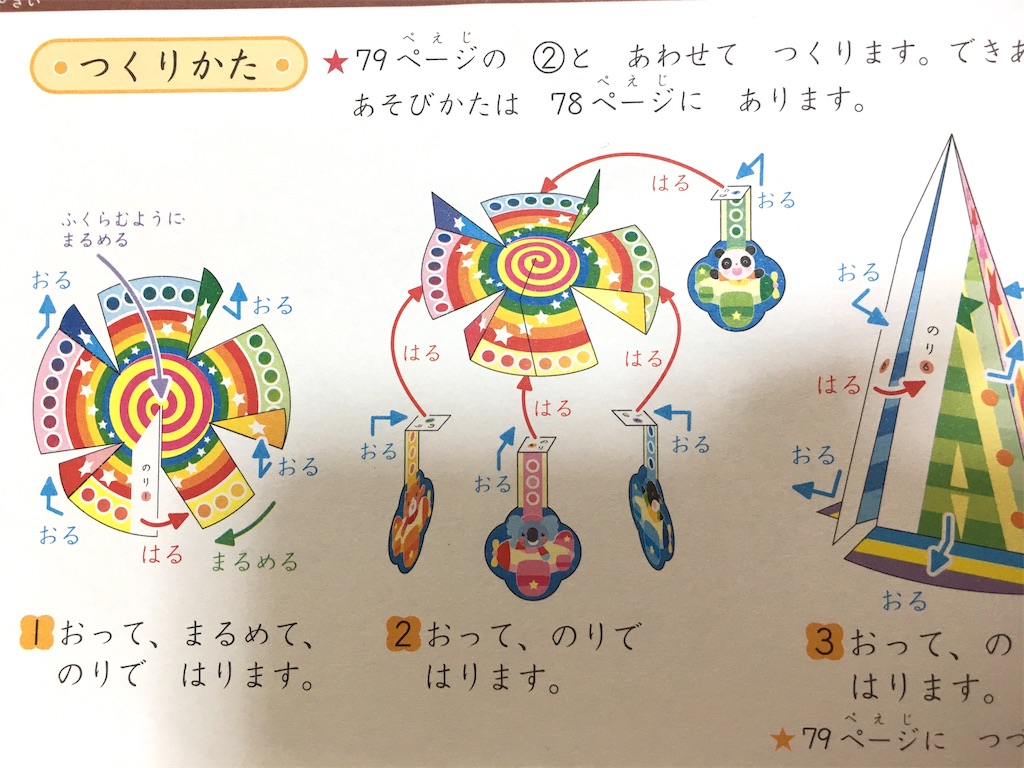 つくりかた
★79ページの ②と あわせて つくります。できあ
ぺえじ
あそびかたは 78ページに あります。
ぺえじ
ふくらむように
まるめる
おる
おる
おる
おる
のり1
はる
まるめる
はる
おる
はる
はる
はる
おる
おる
おる
おる
はる
のり6
おる
おる
1 おって、まるめて、
のりで はります。
2 おって、のりで
はります。
3 おって、の
はります。
★79ページに つづ
ぺえじ